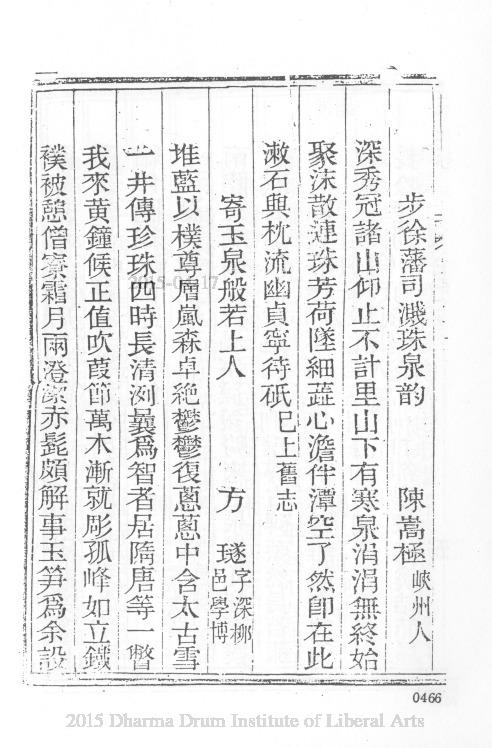 步徐藩司濺珠泉韵 陳嵩極 峽州人
深秀冠諸山仰止不計里山下有寒泉涓涓無終始
聚沫散連珠芳荷墜細蕋心澹伴潭空了然卽在此
漱石與枕流幽貞寧待砥 巳上舊志
寄玉泉般若上人 方璲 字深柳邑學博
堆藍以樸尊層嵐森卓絶鬱鬱復蔥蔥中含太古雪
一井傳珍珠四時長清冽曩爲智者居隋唐等一瞥
我來黄鐘候正值吹葭節萬木漸就彫孤峰如立鐵
襆被憩僧寮霜月兩澄潔赤髭頗解事玉笋爲余設
0466
2015 Dharma Drum Institute of Liberal Arts